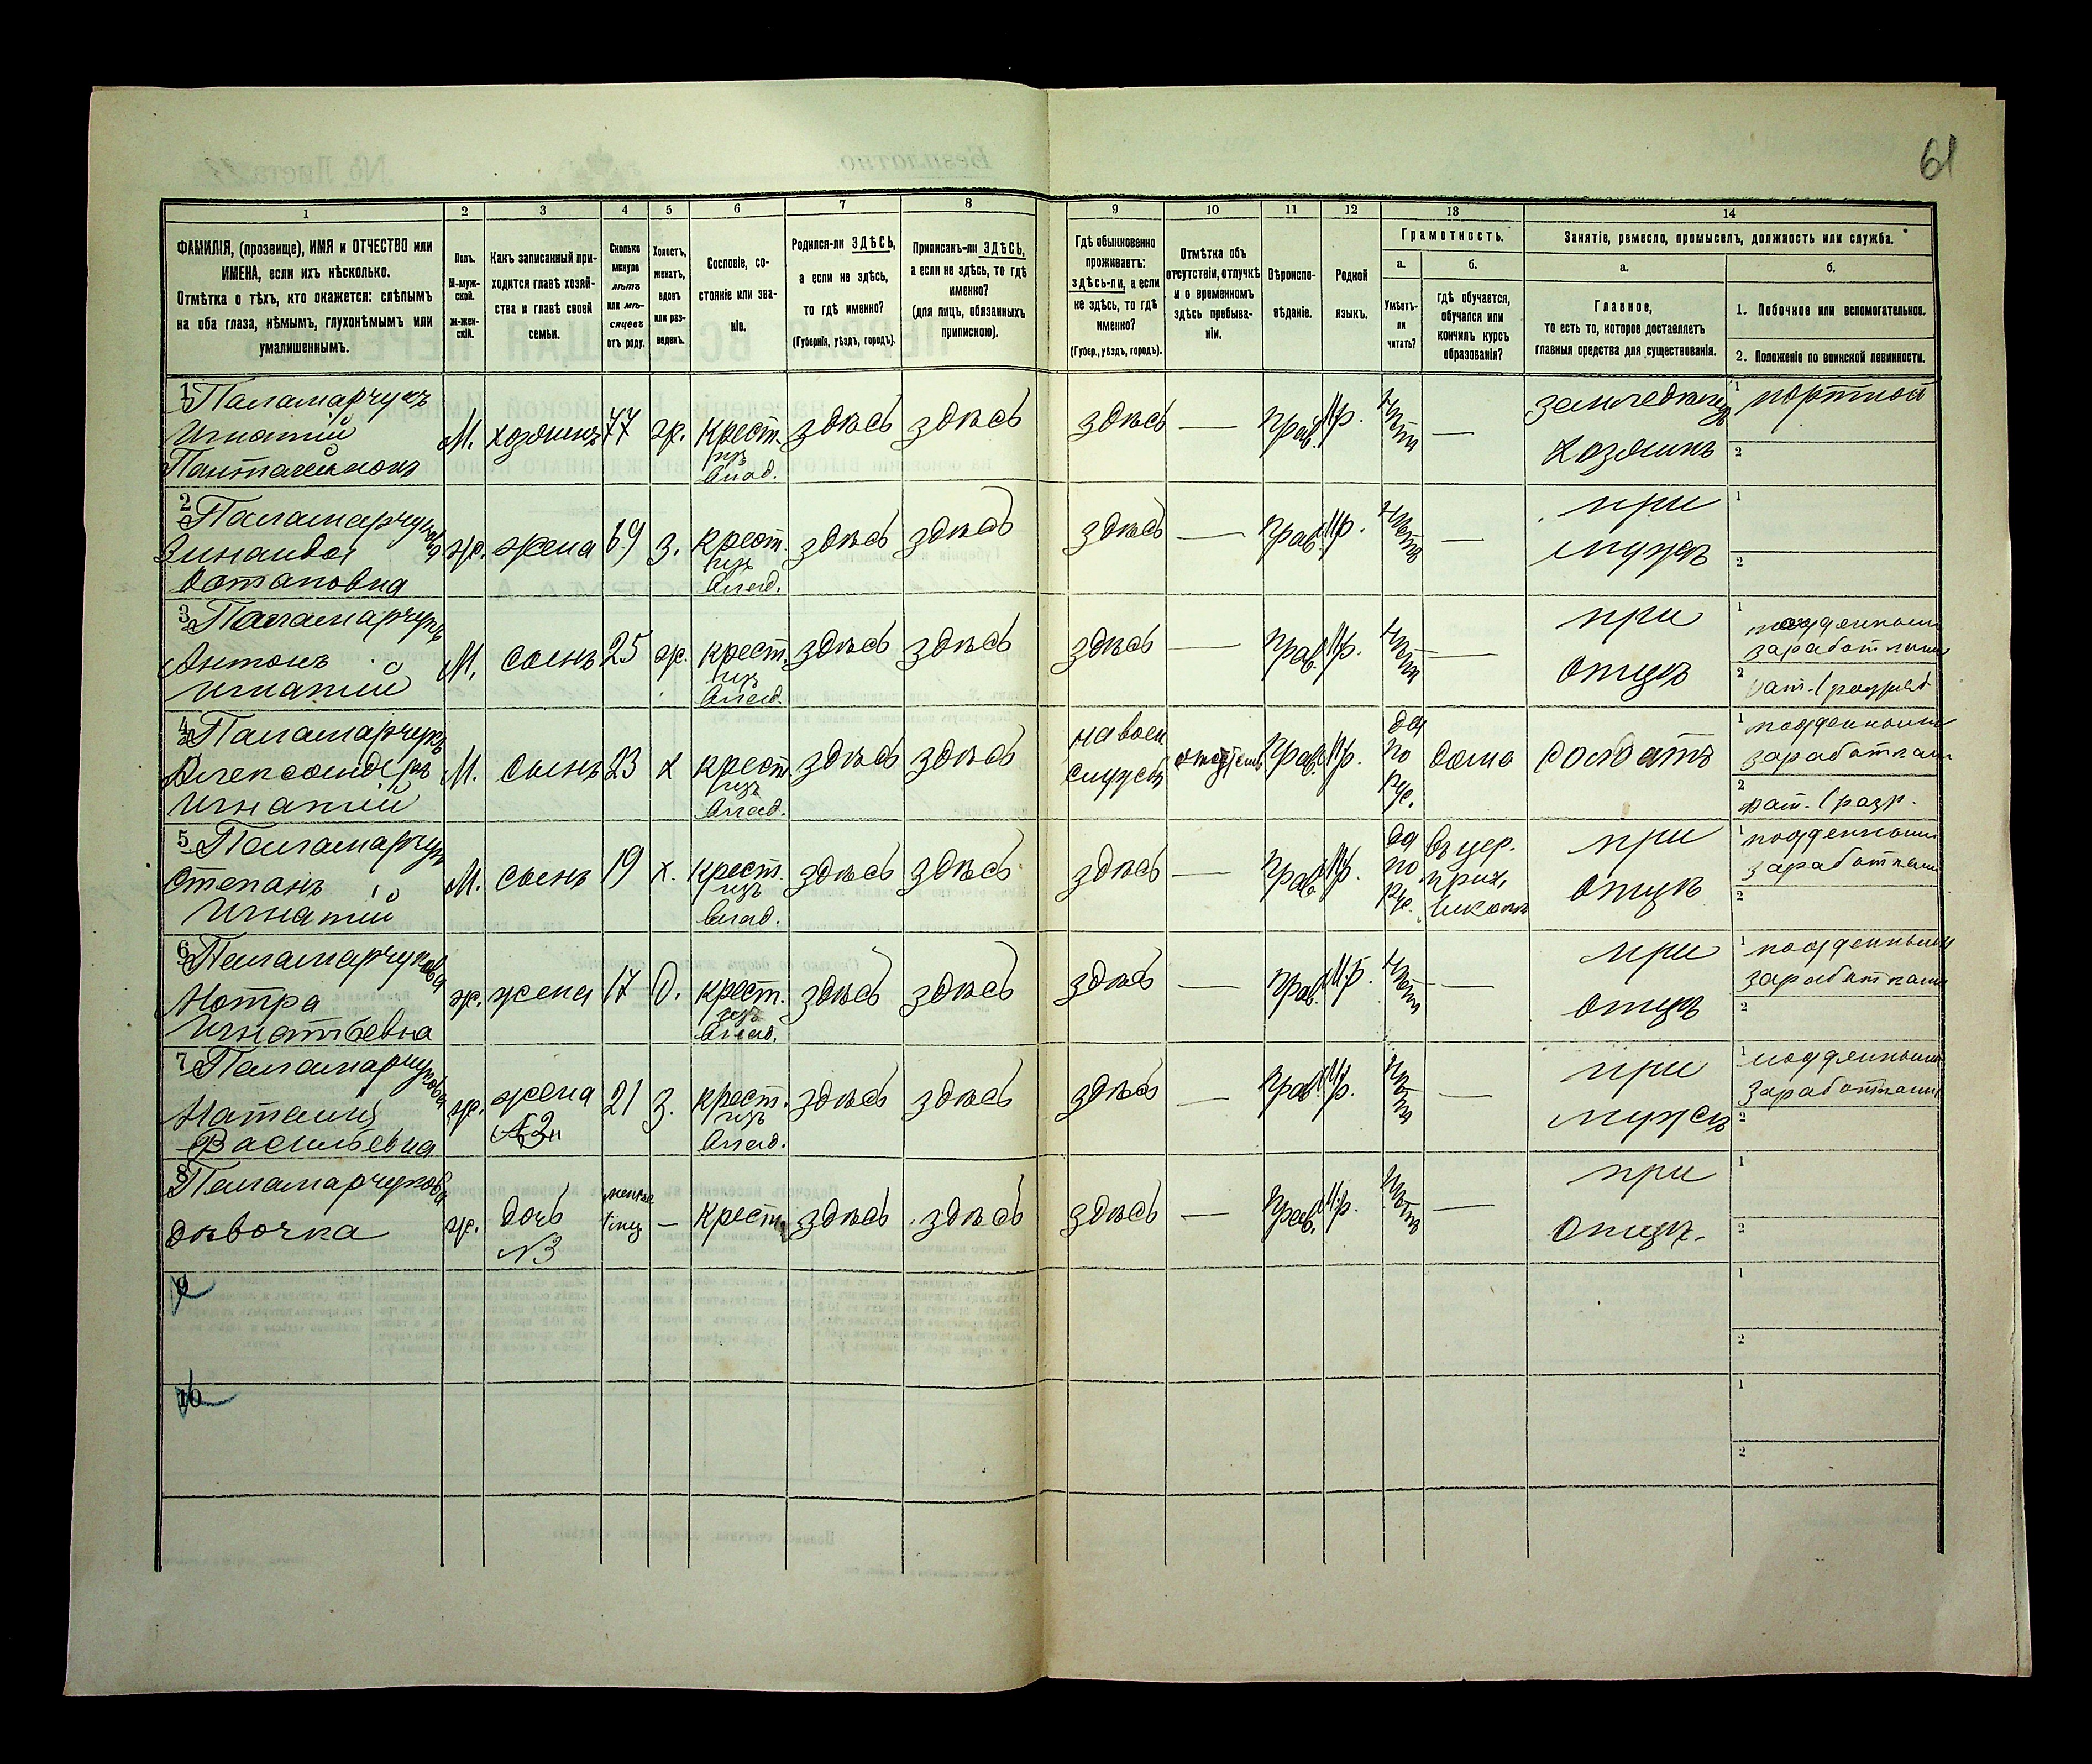 61
1 2 3 4 5 6 7 8 9 10 11 12 13 14
ФАМИЛІЯ, (прозвище), ИМЯ и ОТЧЕСТВО или
ИМЕНА, если ихъ нѣсколько.
Отмѣтка о тѣхъ, кто окажется: слѣпымъ
на оба глаза, нѣмымъ, глухонѣмымъ или
умалишеннымъ.
Полъ.
М-муж-
ской.
ж-жен-
скій.
Какъ записанный при-
ходится главѣ хозяй-
ства и главѣ своей
семьи.
Сколько
минуло
лѣтъ
или мѣ-
сяцевъ
отъ роду.
Холостъ,
женатъ,
вдовъ
или раз-
веденъ.
Сословіе, со-
стояніе или зва-
ніе.
Родился-ли ЗДѢСЬ,
а если не здѣсь,
то гдѣ именно?
(Губернія, уѣздъ, городъ).
Приписанъ-ли ЗДѢСЬ,
а если не здѣсь, то гдѣ
именно?
(для лицъ, обязанныхъ
припискою).
Гдѣ обыкновенно
проживаетъ:
здѣсь-ли, а если
не здѣсь, то гдѣ
именно?
(Губер., уѣздъ, городъ).
Отмѣтка объ
отсутствіи, отлучкѣ
и о временномъ
здѣсь пребыва-
ніи.
Вѣроиспо-
вѣданіе.
Родной
языкъ.
Грамотность.
а.
Умѣетъ-
ли
читать?
б.
Гдѣ обучается,
обучался или
кончилъ курсъ
образованія?
Занятіе, ремесло, промыселъ, должность или служба.
а.
Главное,
то есть то, которое доставляетъ
главныя средства для существованія.
б.
1. Побочное или вспомогательное.
2. Положеніе по воинской повинности.
1 Паламарчукъ
Игнатій
Пантелеймонъ
М. хозяинъ 77 ж. крест.
изъ
влад.
здѣсь здѣсь здѣсь — Прав. нѣтъ —
хозяинъ
1 портной
2
2 Паламарчукова
Зинаида
Потаповна
ж. жена 69 з. крест.
изъ
влад.
здѣсь здѣсь здѣсь — Прав. нѣтъ —
при
мужѣ
1
2
3 Паламарчукъ
Антонъ
Игнатій
М. сынъ 25 ж. крест.
изъ
влад.
здѣсь здѣсь здѣсь — Прав. нѣтъ —
при
отцѣ
1 поденными
заработками
2
4 Паламарчукъ
Александеръ
Игнатій
М. сынъ 23 х крест.
изъ
влад.
здѣсь здѣсь
на воен.
службѣ
Прав.
да
по
рус.
дома солдатъ
1 поденными
заработками
2 рат. 1 разр.
5 Паламарчукъ
Степанъ
Игнатій
М. сынъ 19 х. крест.
изъ
влад.
здѣсь здѣсь здѣсь — Прав.
да
по
рус.
въ цер.
прих.
школѣ
при
отцѣ
1 поденными
заработками
2
6 Паламарчукова
Мотра
Игнатьевна
ж. жена 17 д. крест.
изъ
влад.
здѣсь здѣсь здѣсь — Прав. нѣтъ —
при
отцѣ
1 поденными
заработками
2
7 Паламарчукова
Наталия
Васильевна
ж. жена
21 з. крест.
изъ
влад.
здѣсь здѣсь здѣсь — Прав. нѣтъ —
при
мужѣ
1 поденными
заработками
2
8 Паламарчукова
дѣвочка
ж. дочь
№3
менѣе
— крест. здѣсь здѣсь здѣсь — Прав. нѣтъ —
при
отцѣ.
1
2
9
1
2
10
1
2